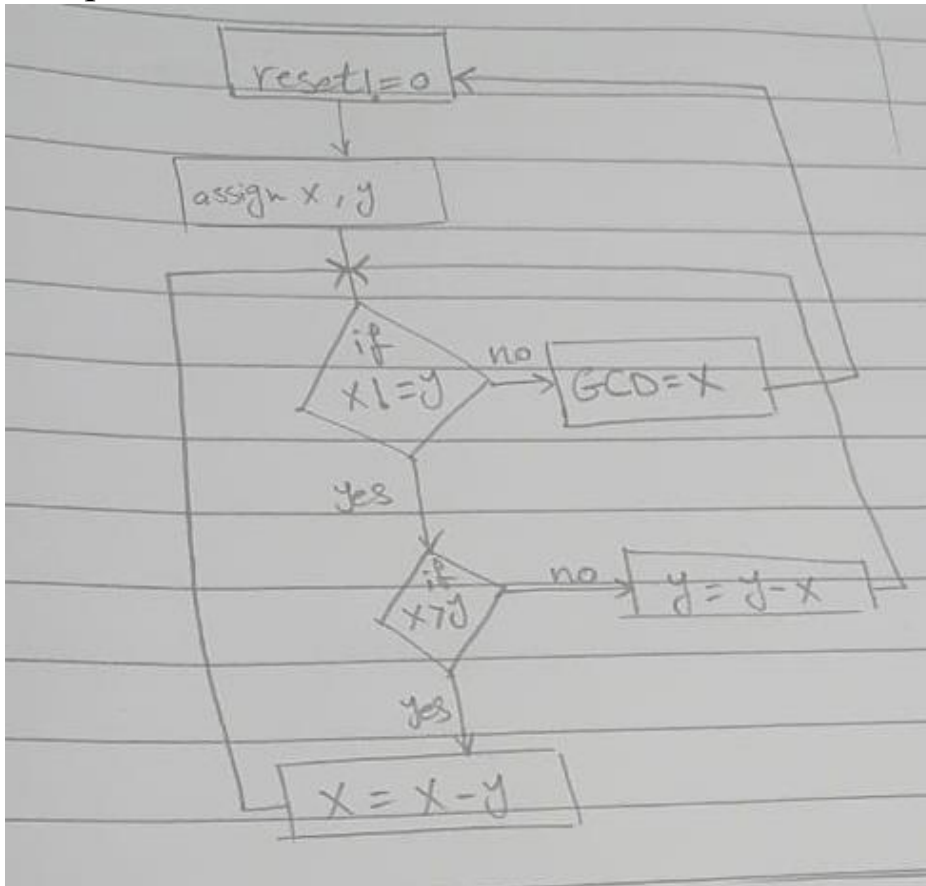 reset!=0
assign x, y
if
x!=y
no
GCD=X
yes
if
x>y
no
y=y-x
yes
X=X-y